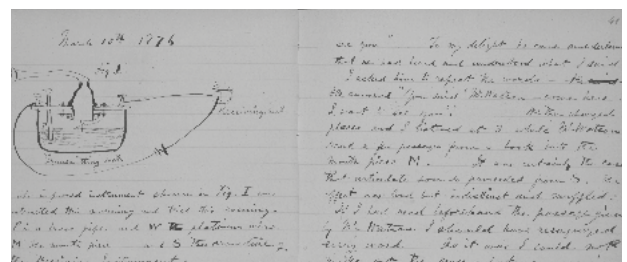 March 10th 1876
Fig. 1.
Receiving Inst
Transmitting Inst
instrument shown in Fig. I was
this morning and tried this evening.
P is a brass pipe and W the platinum wire
M the mouth piece and S the armature of
the Receiving Instrument.
41
see you". To my delight he came and declared
that he had heard and understood what I said.
I asked him to repeat the words - the
He answered "You said Mr. Watson come here
I want to see you". We then changed
places and I listened at S while Mr. Watson
read a few passages from a book into the
mouth piece M. It was certainly the case
that articulate sounds proceeded from S. The
effect was loud but indistinct and muffled.
If I had read beforehand the passage given
by Mr. Watson I should have recognized
every word. As it was I could not